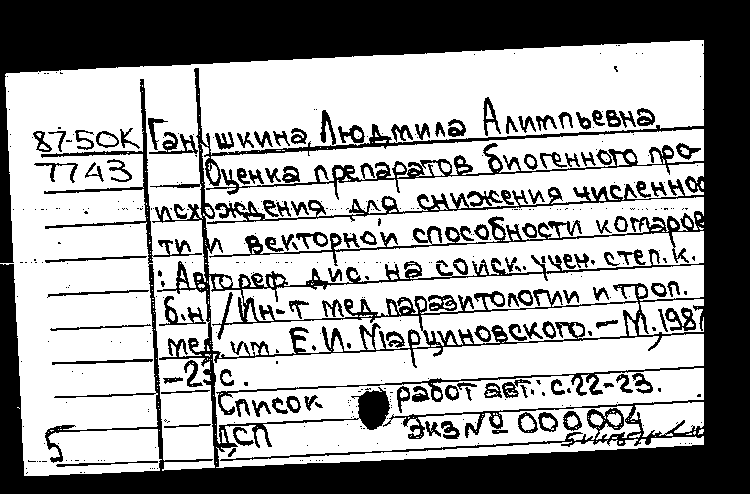 87-50К Ганушкина, Людмила Алимпьевна.
7743 Оценка препаратов биогенного про-
исхождения для снижения численнос
ти и векторной способности комаров
: Автореф. дис. на соиск. учен. степ. к.
б.н. / Ин-т мед. паразитологии и троп.
мед. им. Е. И. Марциновского. – М., 1987
– 23 с.
Список работ авт.: с. 22-23.
5 ДСП Экз № 000004